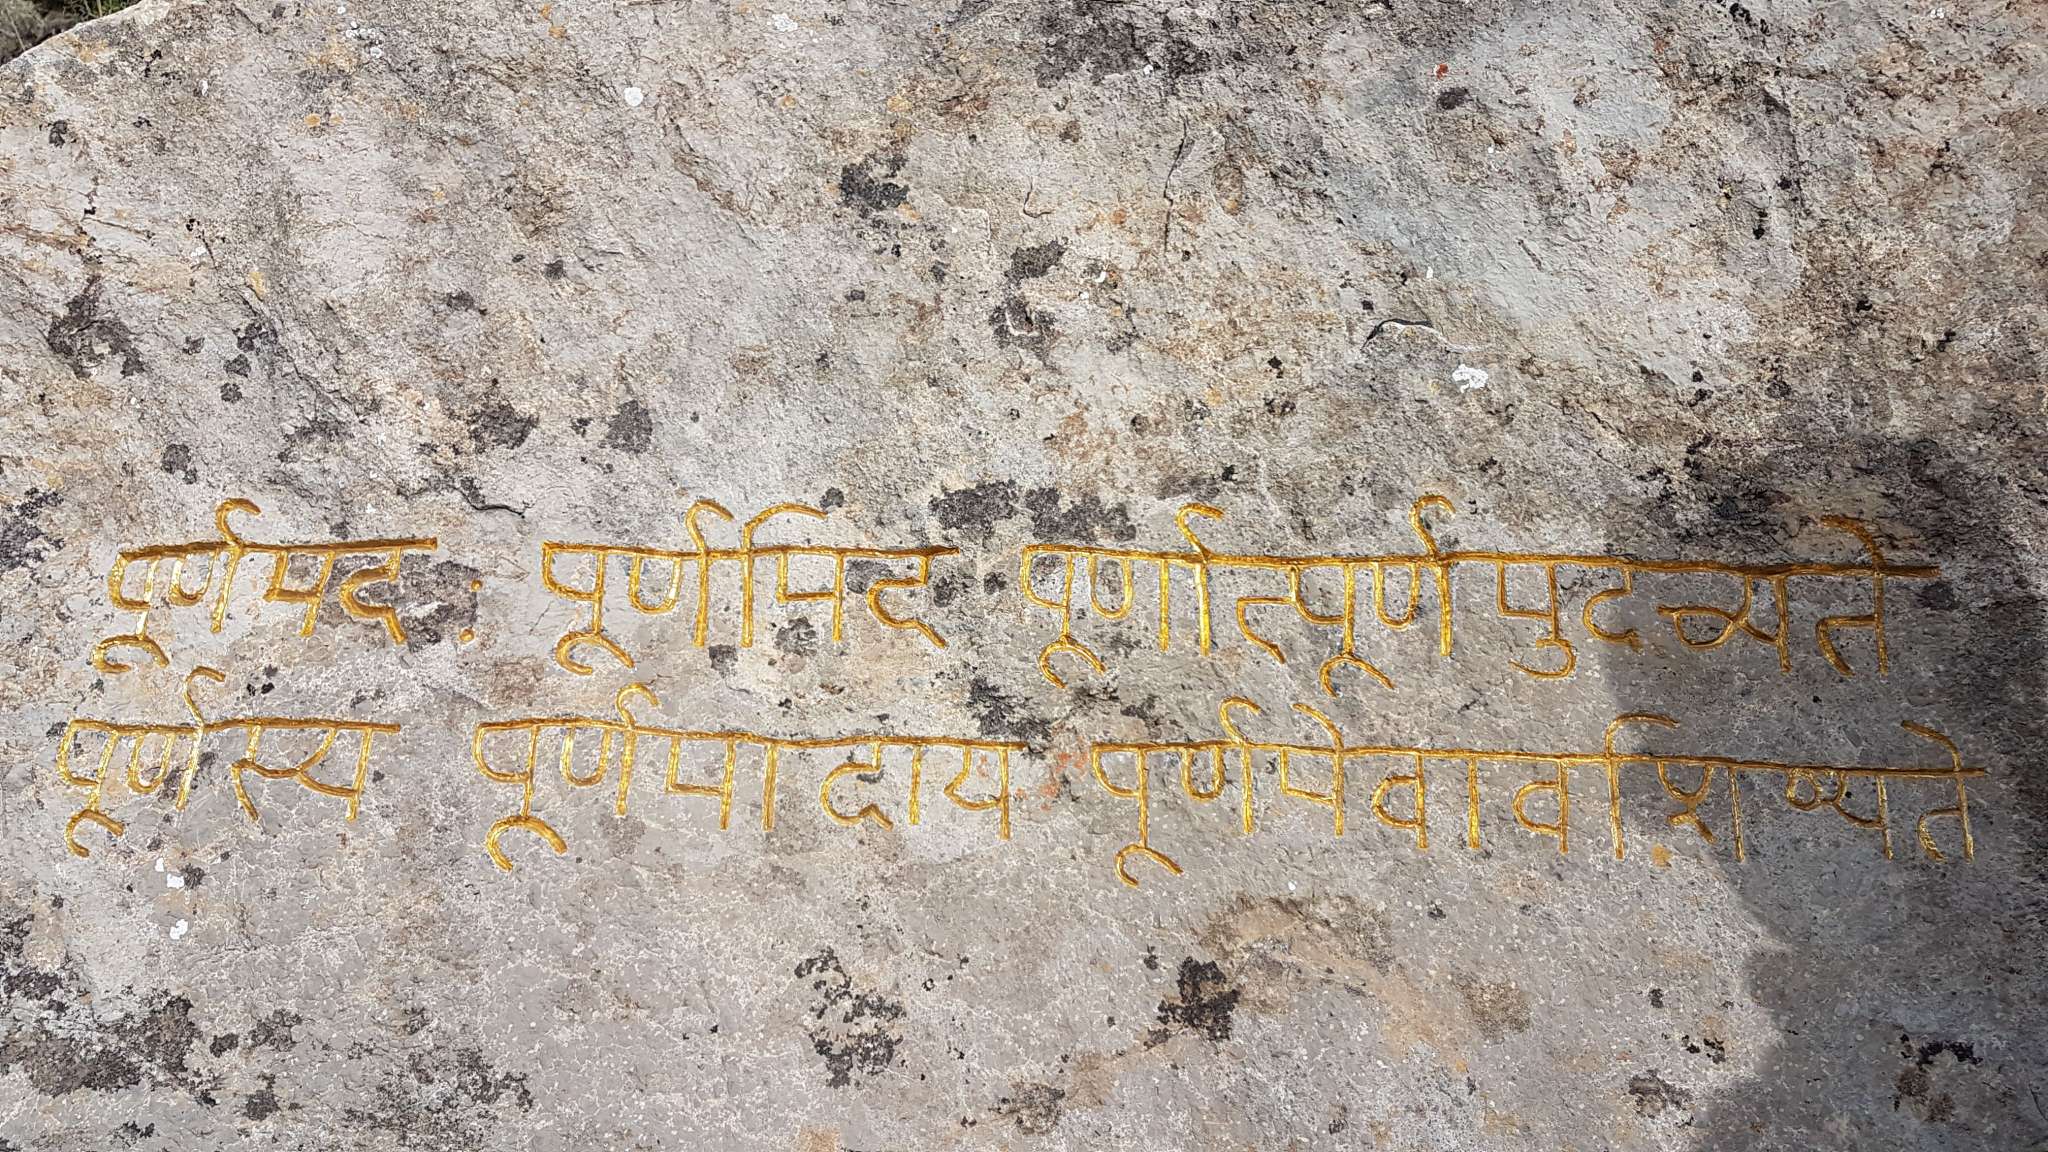 पूर्णमदः पूर्णमिद पूर्णात्पूर्णमुदच्यते
पूर्णस्य पूर्णमादाय पूर्णमेवावशिष्यते